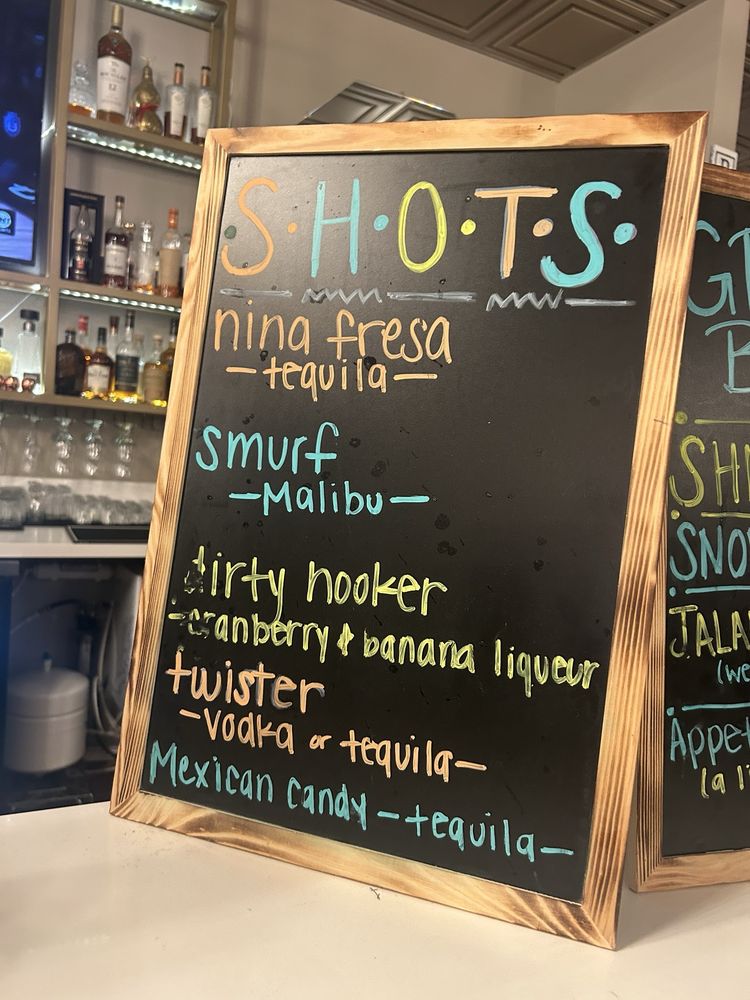 S·H·O·T·S·
nina fresa
—tequila—
smurf
—Malibu—
dirty hooker
-cranberry & banana liqueur
twister
-vodka or tequila—
Mexican candy —tequila—
SNO
JALA
(we
Appet
(a li